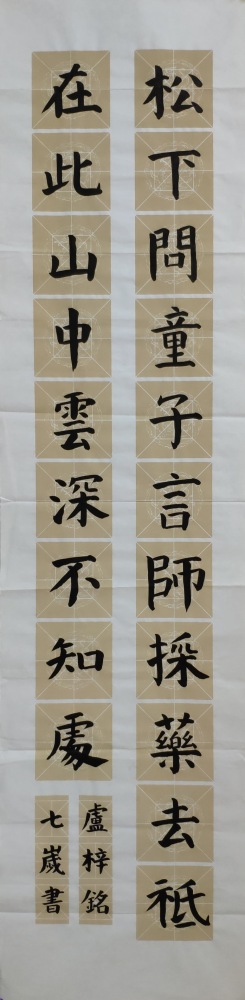 松下問童子言師採藥去祗
在此山中雲深不知處
盧梓銘
七嵗書